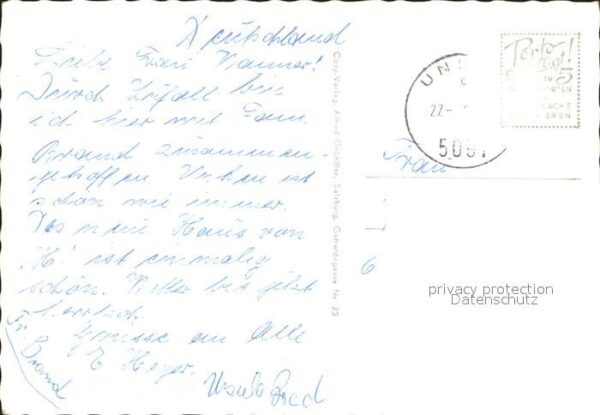 Deutschland
Liebe Frau Wanner!
Durch Zufall bin
ich hier mit Fam.
Brand zusammen-
getroffen Unken ist
schön wie immer.
Das neue Haus von
ist einmalig
schön. Wetter bis jetzt
herrlich
Grüsse an Alle
E. Heger.
Fr. Brand
Ursula
Cosy-Verlag, Alfred Gründler, Salzburg, Getreidegasse Nr. 22
UN
27.-
509
Porto
5
Frau
6
privacy protection
Datenschutz